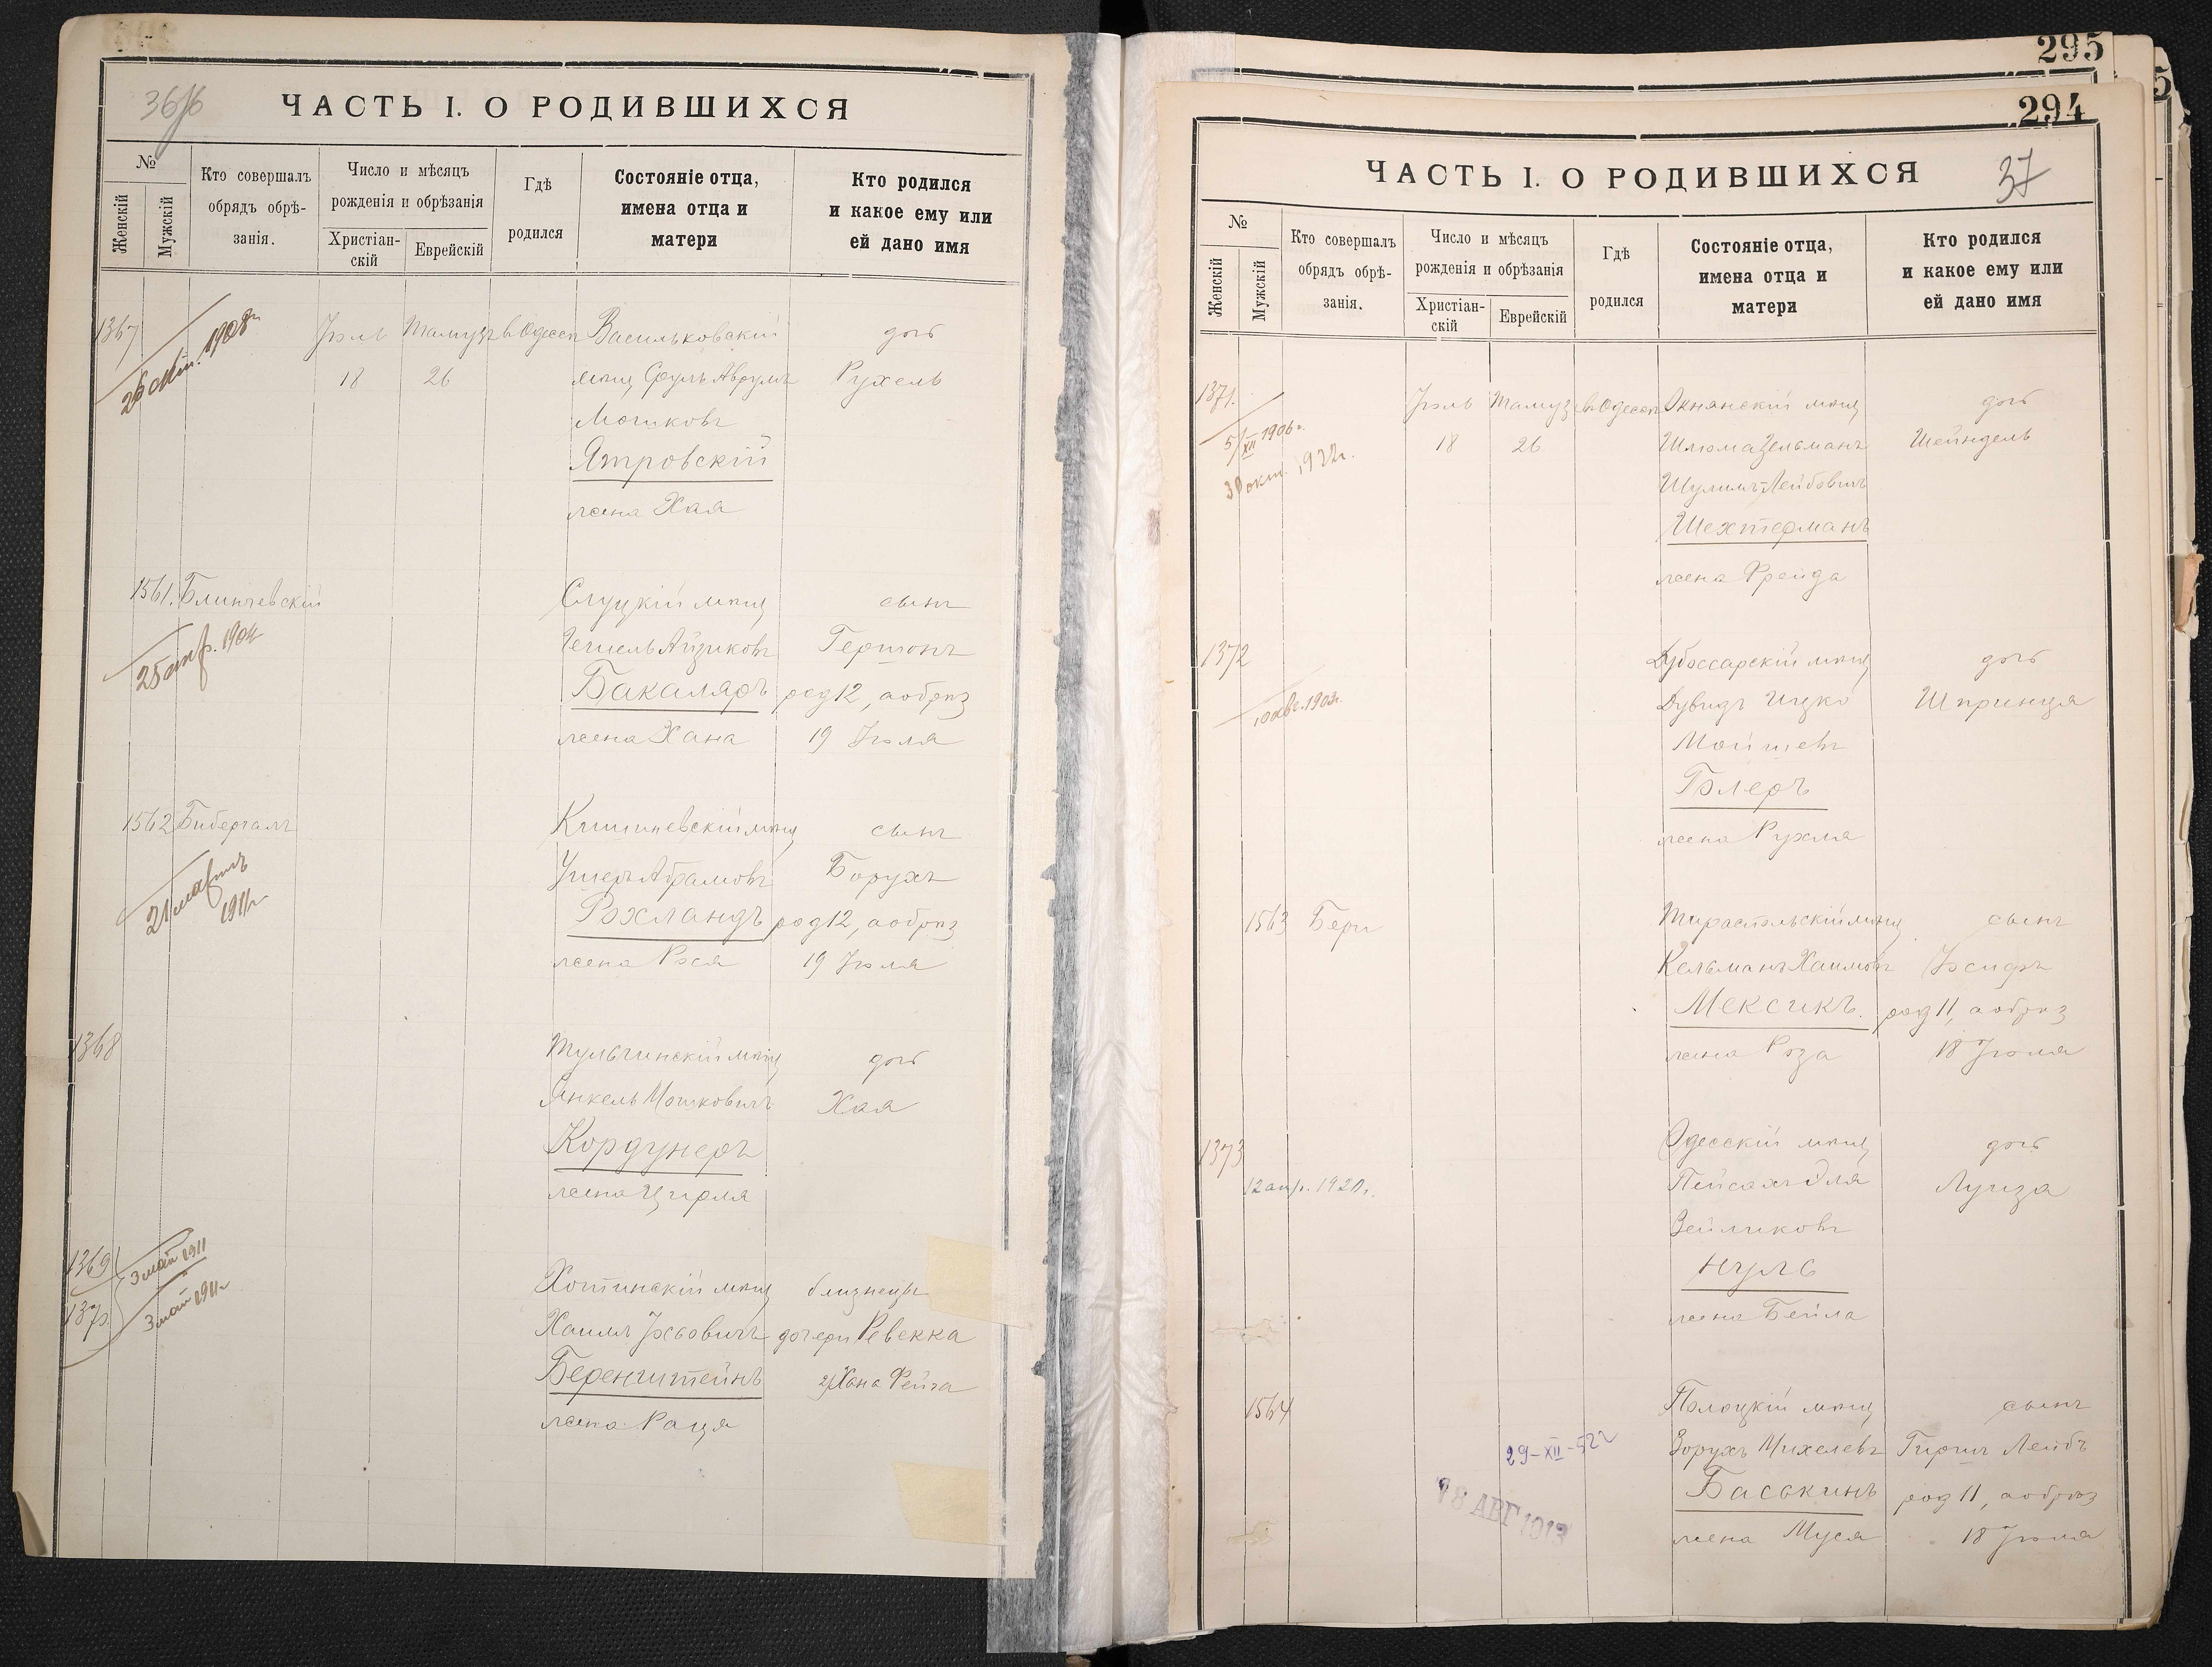 ЧАСТЬ I. О РОДИВШИХСЯ
№
Женскій
Мужскій
Кто совершалъ
обрядъ обрѣ-
занія.
Число и мѣсяцъ
рожденія и обрѣзанія
Христіан-
скій
Еврейскій
Гдѣ
родился
Состояніе отца,
имена отца и
матери
Кто родился
и какое ему или
ей дано имя
1367
1908г
Іюль Тамузъ въ Одессѣ Васильковскій дочь
18 26 мѣщ Сруль Аврумъ Рухель
Мошковъ
Ятровскій
жена Хая
1561. Блинчевскій Слуцкій мѣщ сынъ
25 апр. 1904
Гершонъ
Бакаляръ род 12, а обрѣз
жена Хана 19 Іюля
1562 Бибергалъ Кишиневскій мѣщ сынъ
Ушеръ Абрамовъ Борухъ
21 мартъ
1911г
Рохландъ род 12, а обрѣз
жена Рося 19 Іюля
1368 Тульчинскій мѣщ дочь
Янкель Мошковичъ Хая
Кордунеръ
жена Цирля
1369 3 май 1911
Хотинскій мѣщ близнецы
1370 3 май 1911г
Хаимъ Іосьовичъ дочери Ревекка
Беренштейнъ 2) Хана Фейга
жена Раця
295
294
ЧАСТЬ I. О РОДИВШИХСЯ 37
№
Женскій
Мужскій
Кто совершалъ
обрядъ обрѣ-
занія.
Число и мѣсяцъ
рожденія и обрѣзанія
Христіан-
скій
Еврейскій
Гдѣ
родился
Состояніе отца,
имена отца и
матери
Кто родился
и какое ему или
ей дано имя
1371. Іюль Тамуз въ Одессѣ Окнянскій мѣщ дочь
5/XII 1906г.
18 26 Шлюма Зельманъ Шейндель
30 окт. 1922г.
Шулимъ-Лейбовичъ
Шехтерманъ
жена Фрейда
1372 Дубоссарскій мѣщ дочь
10 авг. 1903г.
Дувидъ Ицко Шпринца
Мойшевъ
Гэлеръ
жена Рухля
1563 Бери Тираспольскій мѣщ сынъ
Кельманъ Хаимовъ Іосифъ
Мексикъ. род 11, а обрѣз
жена Роза 18 Іюля
1373 Одесскій мѣщ дочь
12 апр. 1920г. Пейсахъ Эля Луиза
Зейликовъ
Нуль
жена Бейла
1564 Полоцкій мѣщ сынъ
29-XII-52г
Зорухъ Михелевъ Гиршъ Лейбъ
18 АВГ 1913
Баськинъ род 11, а обрѣз
жена Муся 18 Іюля